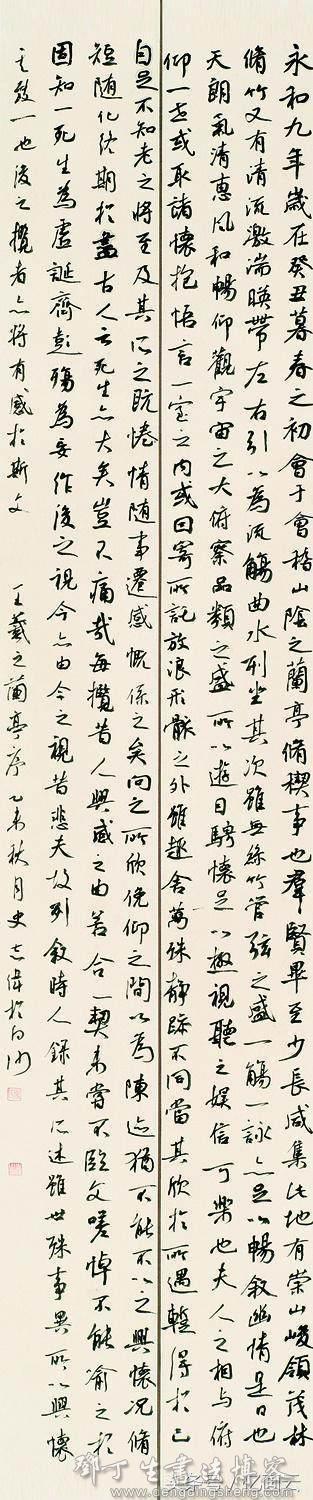 永和九年歲在癸丑暮春之初會于會稽山陰之蘭亭脩稧事也羣賢畢至少長咸集此地有崇山峻領茂林
脩竹又有清流激湍暎帶左右引以為流觴曲水列坐其次雖無絲竹管弦之盛一觴一詠亦足以暢敘幽情是日也
天朗氣清惠風和暢仰觀宇宙之大俯察品類之盛所以遊目騁懷足以極視聽之娛信可樂也夫人之相與俯
仰一世或取諸懷抱悟言一室之內或因寄所託放浪形骸之外雖趣舍萬殊靜躁不同當其欣於所遇暫得於己
自足不知老之將至及其所之既惓情隨事遷感慨係之矣向之所欣俛仰之間以為陳迹猶不能不以之興懷況脩
短隨化終期於盡古人云死生亦大矣豈不痛哉每攬昔人興感之由若合一契未嘗不臨文嗟悼不能喻之於
固知一死生為虛誕齊彭殤為妄作後之視今亦由今之視昔悲夫故列敘時人錄其所述雖世殊事異所以興懷
其致一也後之攬者亦將有感於斯文
王羲之蘭亭序 乙未秋月史志偉於白沙
鄧丁生書法博客
dengdingsheng.com